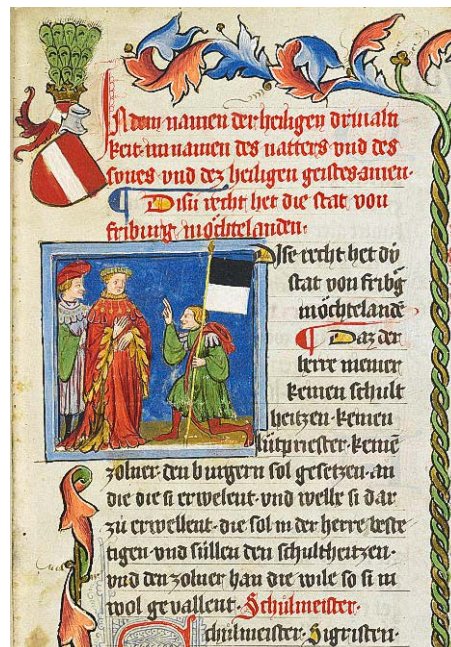 In dem namen der heiligen drinalti
keit in namen des vatters vnd des
sones vnd dez heiligen geistes amen.
Disu recht het die stat von
friburg möchtelanden.
Dise recht het dÿ
stat von fribg
möchtelandē
Daz der
herre niemer
keinen schult
heitzen keinen
lútpriester keinē
zolner den burgern sol gesetzen an
die die si erwelent. vnd welle si dar
zů erwellent. die sol in der herre beste
tigen vnd süllen den schultheitzen.
vnd den zolner han die wile so si in
wol gevallent. Schůlmeister.
Schůlmeister. Sigristen.